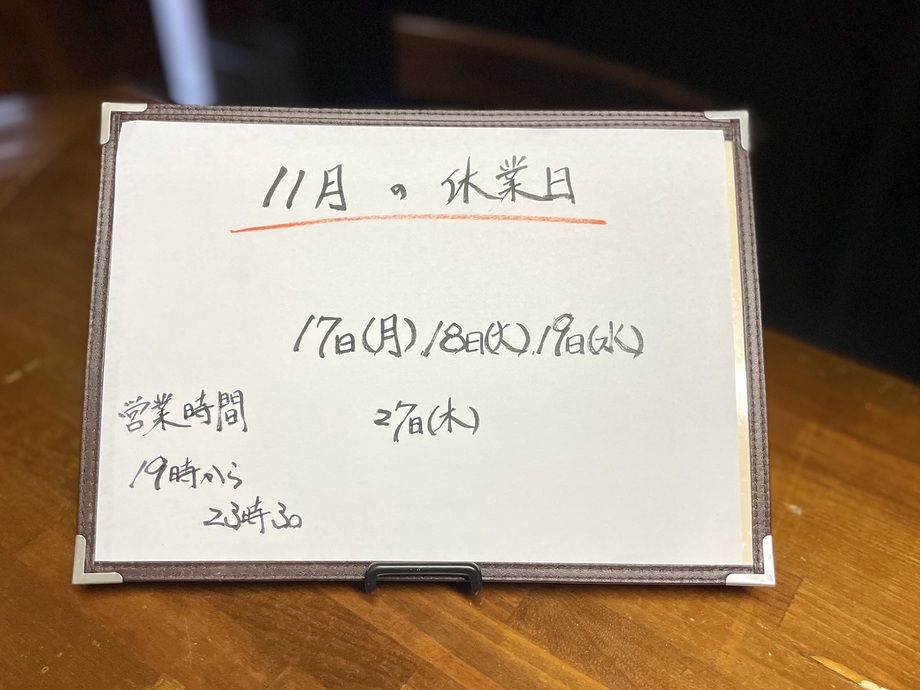 11月の休業日
17日(月).18日(火).19日(水)
27日(木)
営業時間
19時から
23時30